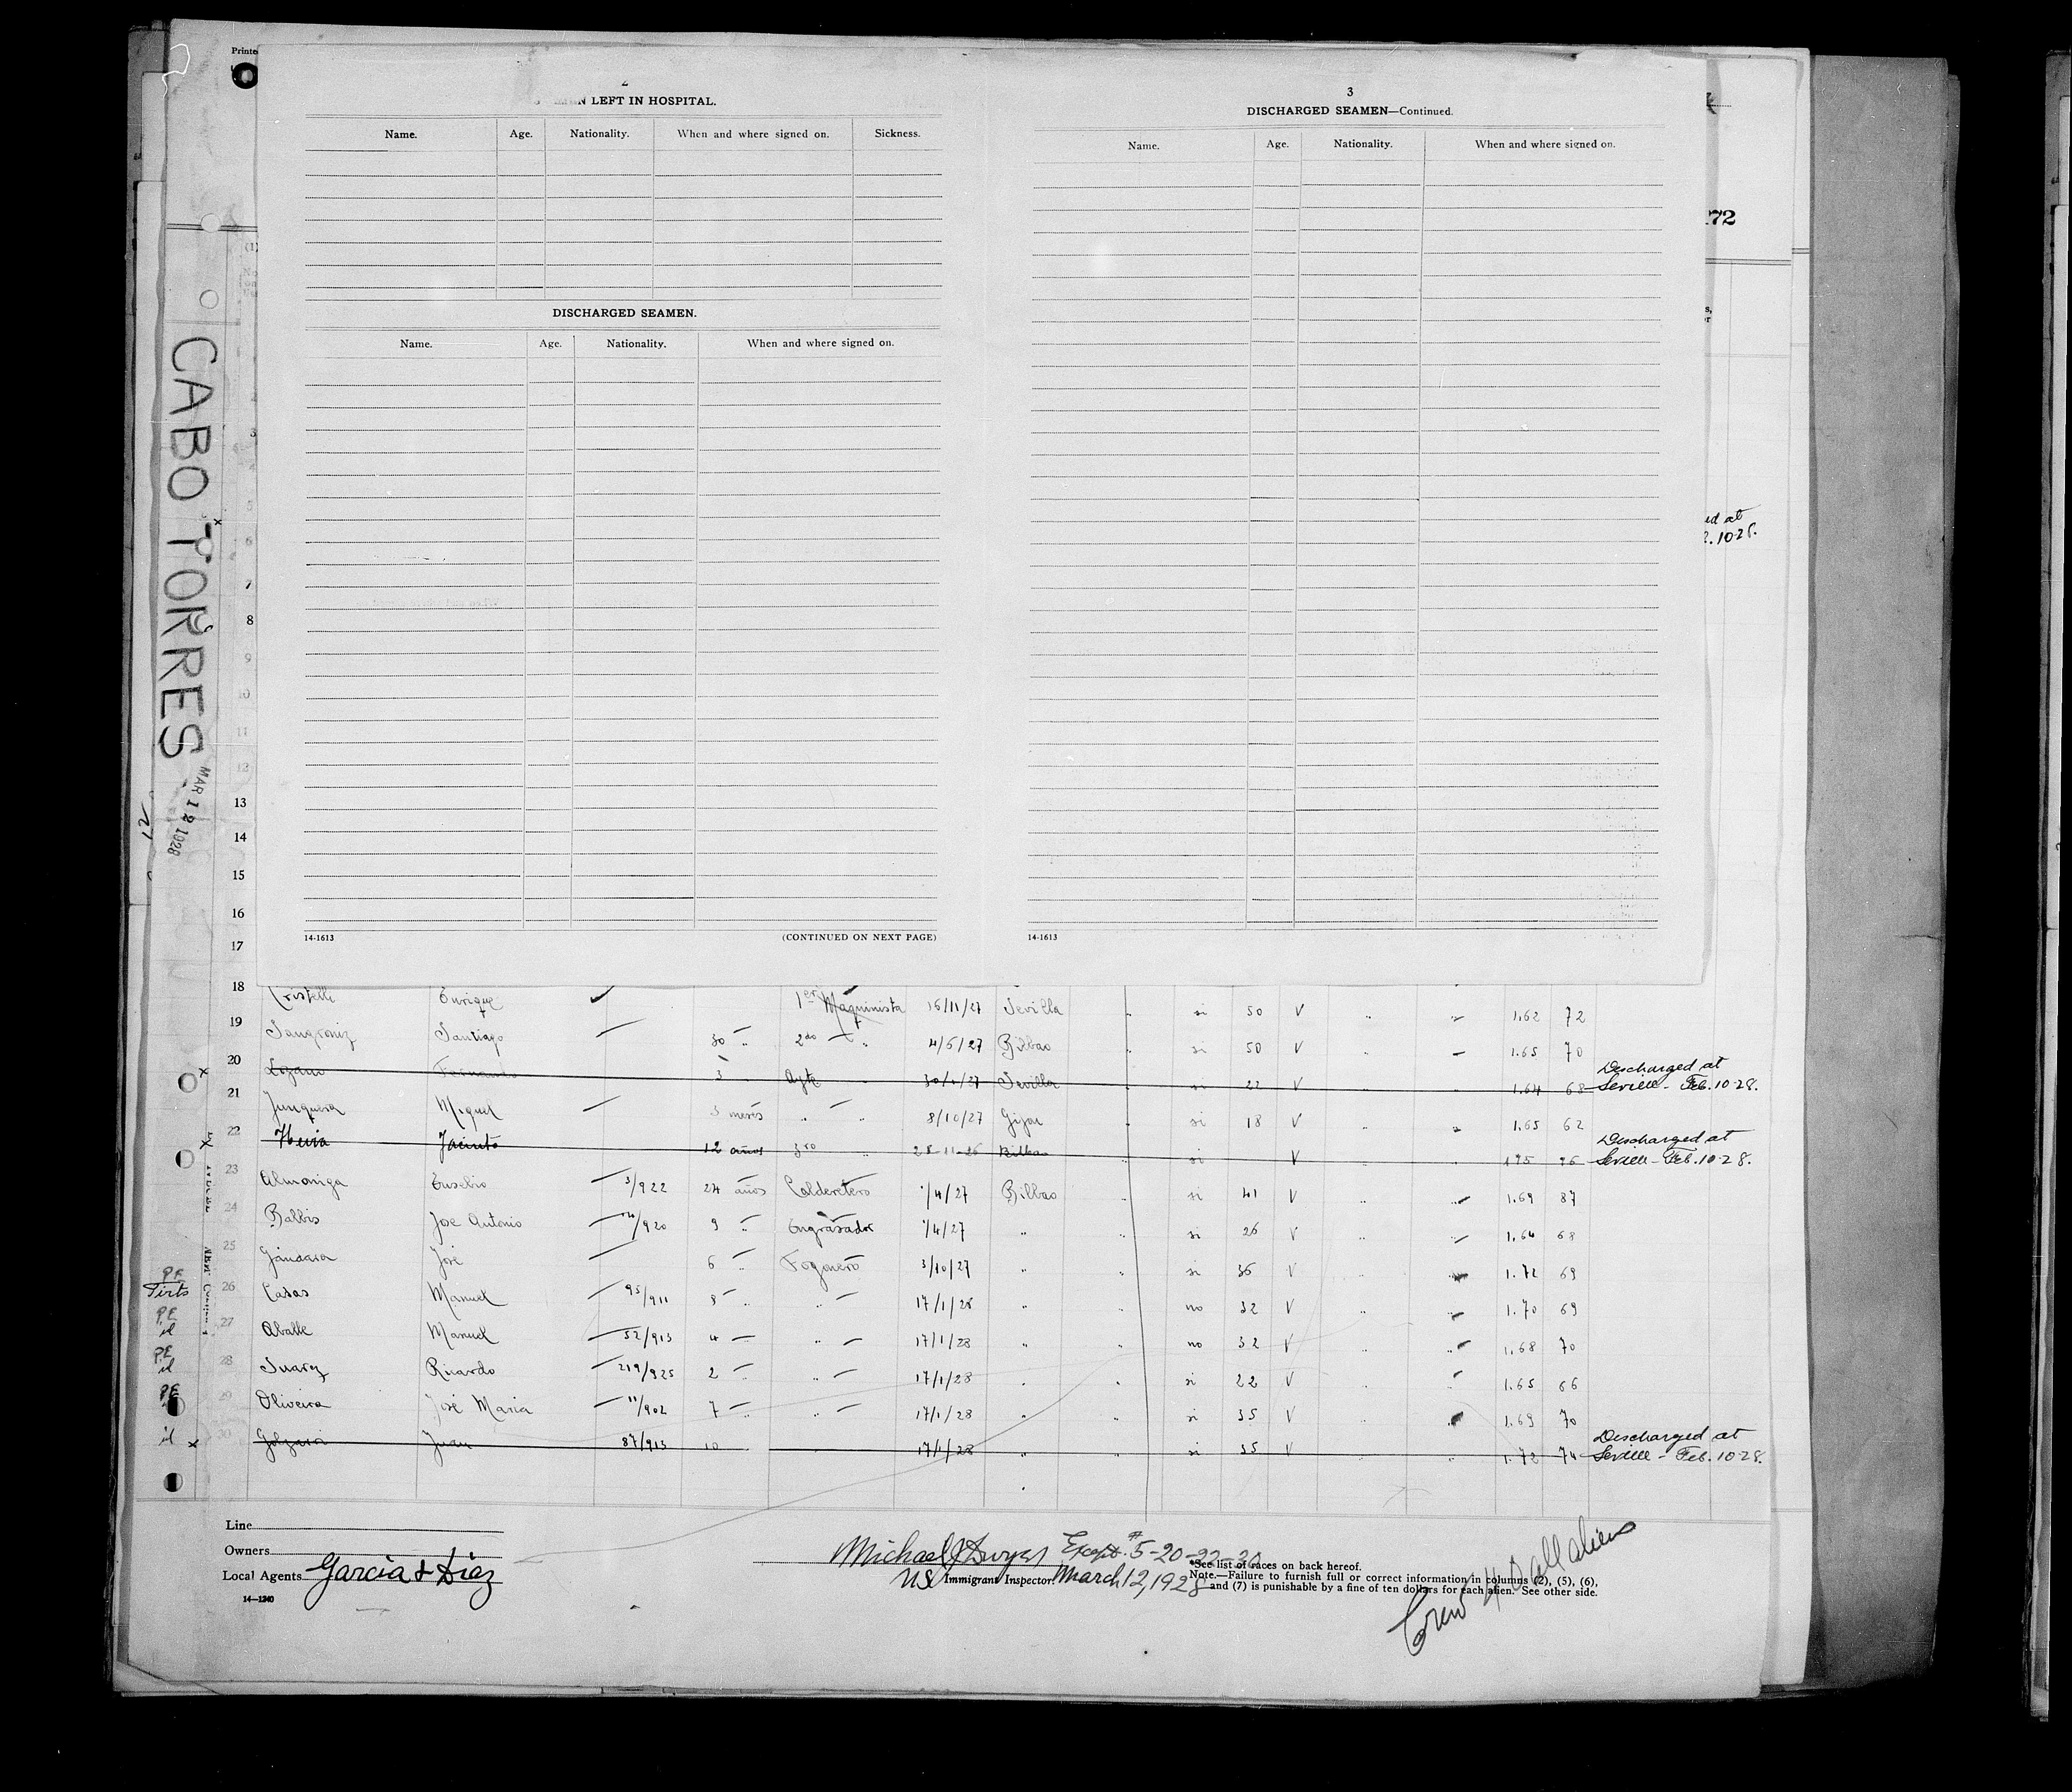 Printe
CABO TORRES
MAR 12 1928
LEFT IN HOSPITAL.
Name. Age. Nationality. When and where signed on. Sickness.
DISCHARGED SEAMEN.
Name. Age. Nationality. When and where signed on.
14-1613 (CONTINUED ON NEXT PAGE)
3
DISCHARGED SEAMEN—Continued.
Name. Age. Nationality. When and where signed on.
14-1613
72
ed at
10-28.
3
7
8
9
10
11
12
13
14
15
16
17
18 Cristelli Enrique 1er Maquinista 16/11/27 Sevilla " si 50 V " " 1.62 72
19 Sangroniz Santiago 30 " 2do " 4/5/27 Bilbao " si 50 V " 1.65 70
20 Lozano Fernando 3 Ayte " Sevilla si 22 V 1.64 68 Discharged at
Seville - Feb. 10-28.
21 Junquera Miguel 3 meses " " 8/10/27 Gijon si 18 V " 1.65 62
22 Hevia Jacinto 12 años 3ro " 28-11-26 Bilbao si V Discharged at
Seville - Feb. 10-28.
23 Almoniga Eusebio 3/922 24 años Calderetero /4/27 Bilbao " si 41 V " " 1.69 87
24 Balbis Jose Antonio /920 9 " Engrasador 1/4/27 " " si 26 V " " 1.64 68
25 Gándara José 6 " Fogonero 3/10/27 " " si 36 V " " 1.72 69
PE
Firts 26 Casas Manuel 95/911 8 " " 17/1/28 " " no 32 V " " 1.70 69
P.E
id 27 Aballe Manuel 52/913 4 " 17/1/28 " " no 32 V " " 1.68 70
PE
id 28 Suarez Ricardo 219/925 2 " 17/1/28 " " si 22 V " " 1.65 66
PE
29 Oliveira José Maria 11/902 7 " " 17/1/28 " " si 35 V " " 1.69 70
id x 30 Juan 87/913 10 17/1/28 " " si 35 V " " 1.72 74 Discharged at
Seville - Feb. 10-28.
Line
Owners
Local Agents Garcia & Diaz
14—1240
Michael J Dwyer Except #5-20-22-30
US Immigrant Inspector. March 12, 1928
*See list of races on back hereof.
Note.—Failure to furnish full or correct information in columns (2), (5), (6),
and (7) is punishable by a fine of ten dollars for each alien. See other side.
Crew 40 all aliens